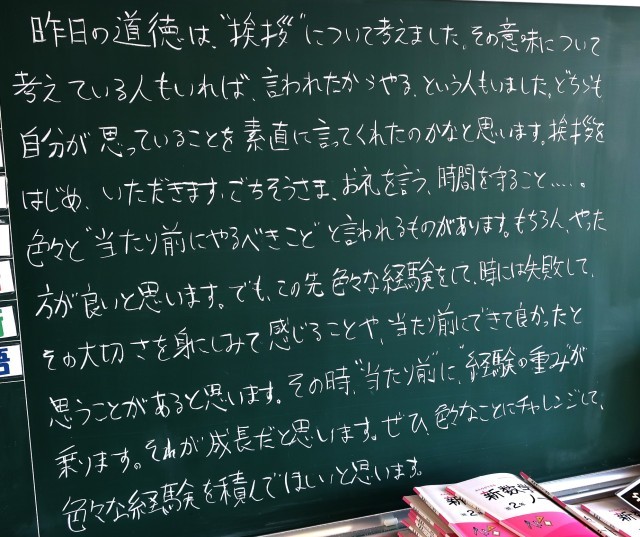 昨日の道徳は、"挨拶"について考えました。その意味について
考えている人もいれば、言われたからやる、という人もいました。どちらも
自分が思っていることを素直に言ってくれたのかなと思います。挨拶を
はじめ、いただきます、ごちそうさま、お礼を言う、時間を守ること……。
色々と"当たり前にやるべきこと"と言われるものがあります。もちろん、やった
方が良いと思います。でも、この先色々な経験をして、時には失敗して、
その大切さを身にしみて感じることや、当たり前にできて良かったと
思うことがあると思います。その時、"当たり前"に、"経験の重み"が
乗ります。それが成長だと思います。ぜひ、色々なことにチャレンジして、
色々な経験を積んでほしいと思います。
語
新数学